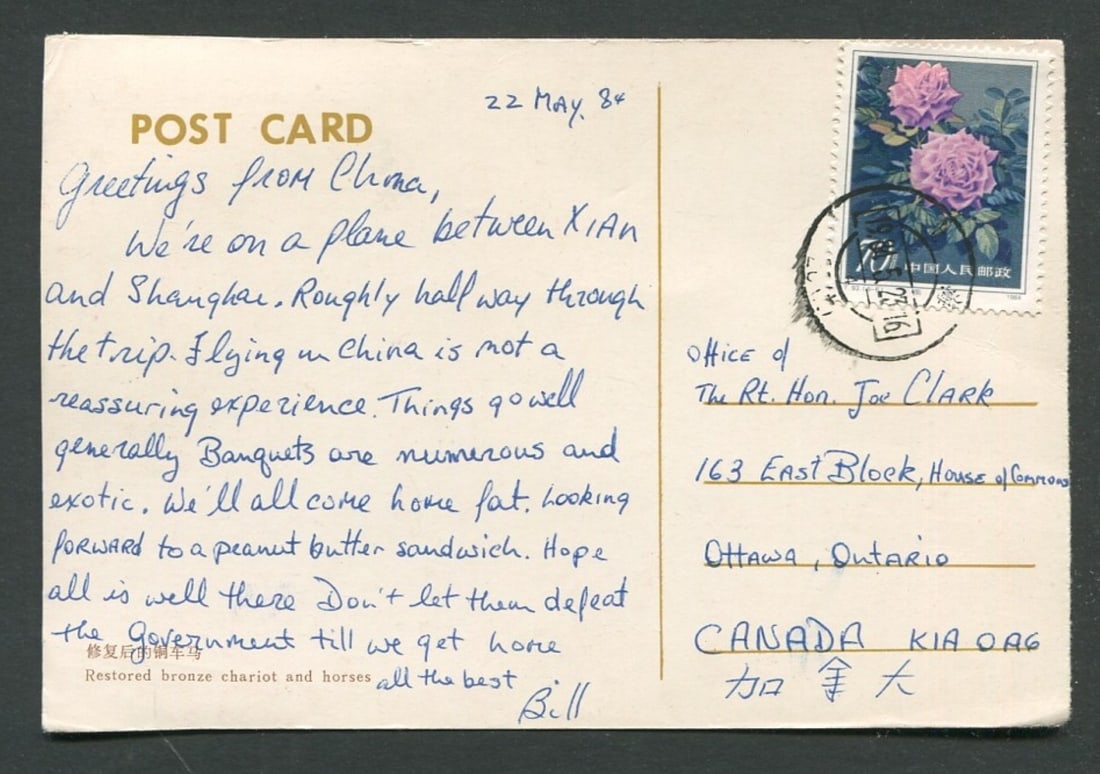 22 MAY. 84
POST CARD
Greetings from China,
We're on a plane between XIAN
and Shanghai. Roughly half way through
the trip. Flying in China is not a
reassuring experience. Things go well
generally Banquets are numerous and
exotic. We'll all come home fat. Looking
forward to a peanut butter sandwich. Hope
all is well there Don't let them defeat
the Government till we get home
修复后的铜车马
Restored bronze chariot and horses
all the best
Bill
70
中国人民邮政
1984
Office of
The Rt. Hon. Joe Clark
163 East Block, House of Commons
Ottawa, Ontario
CANADA K1A 0A6
加拿大